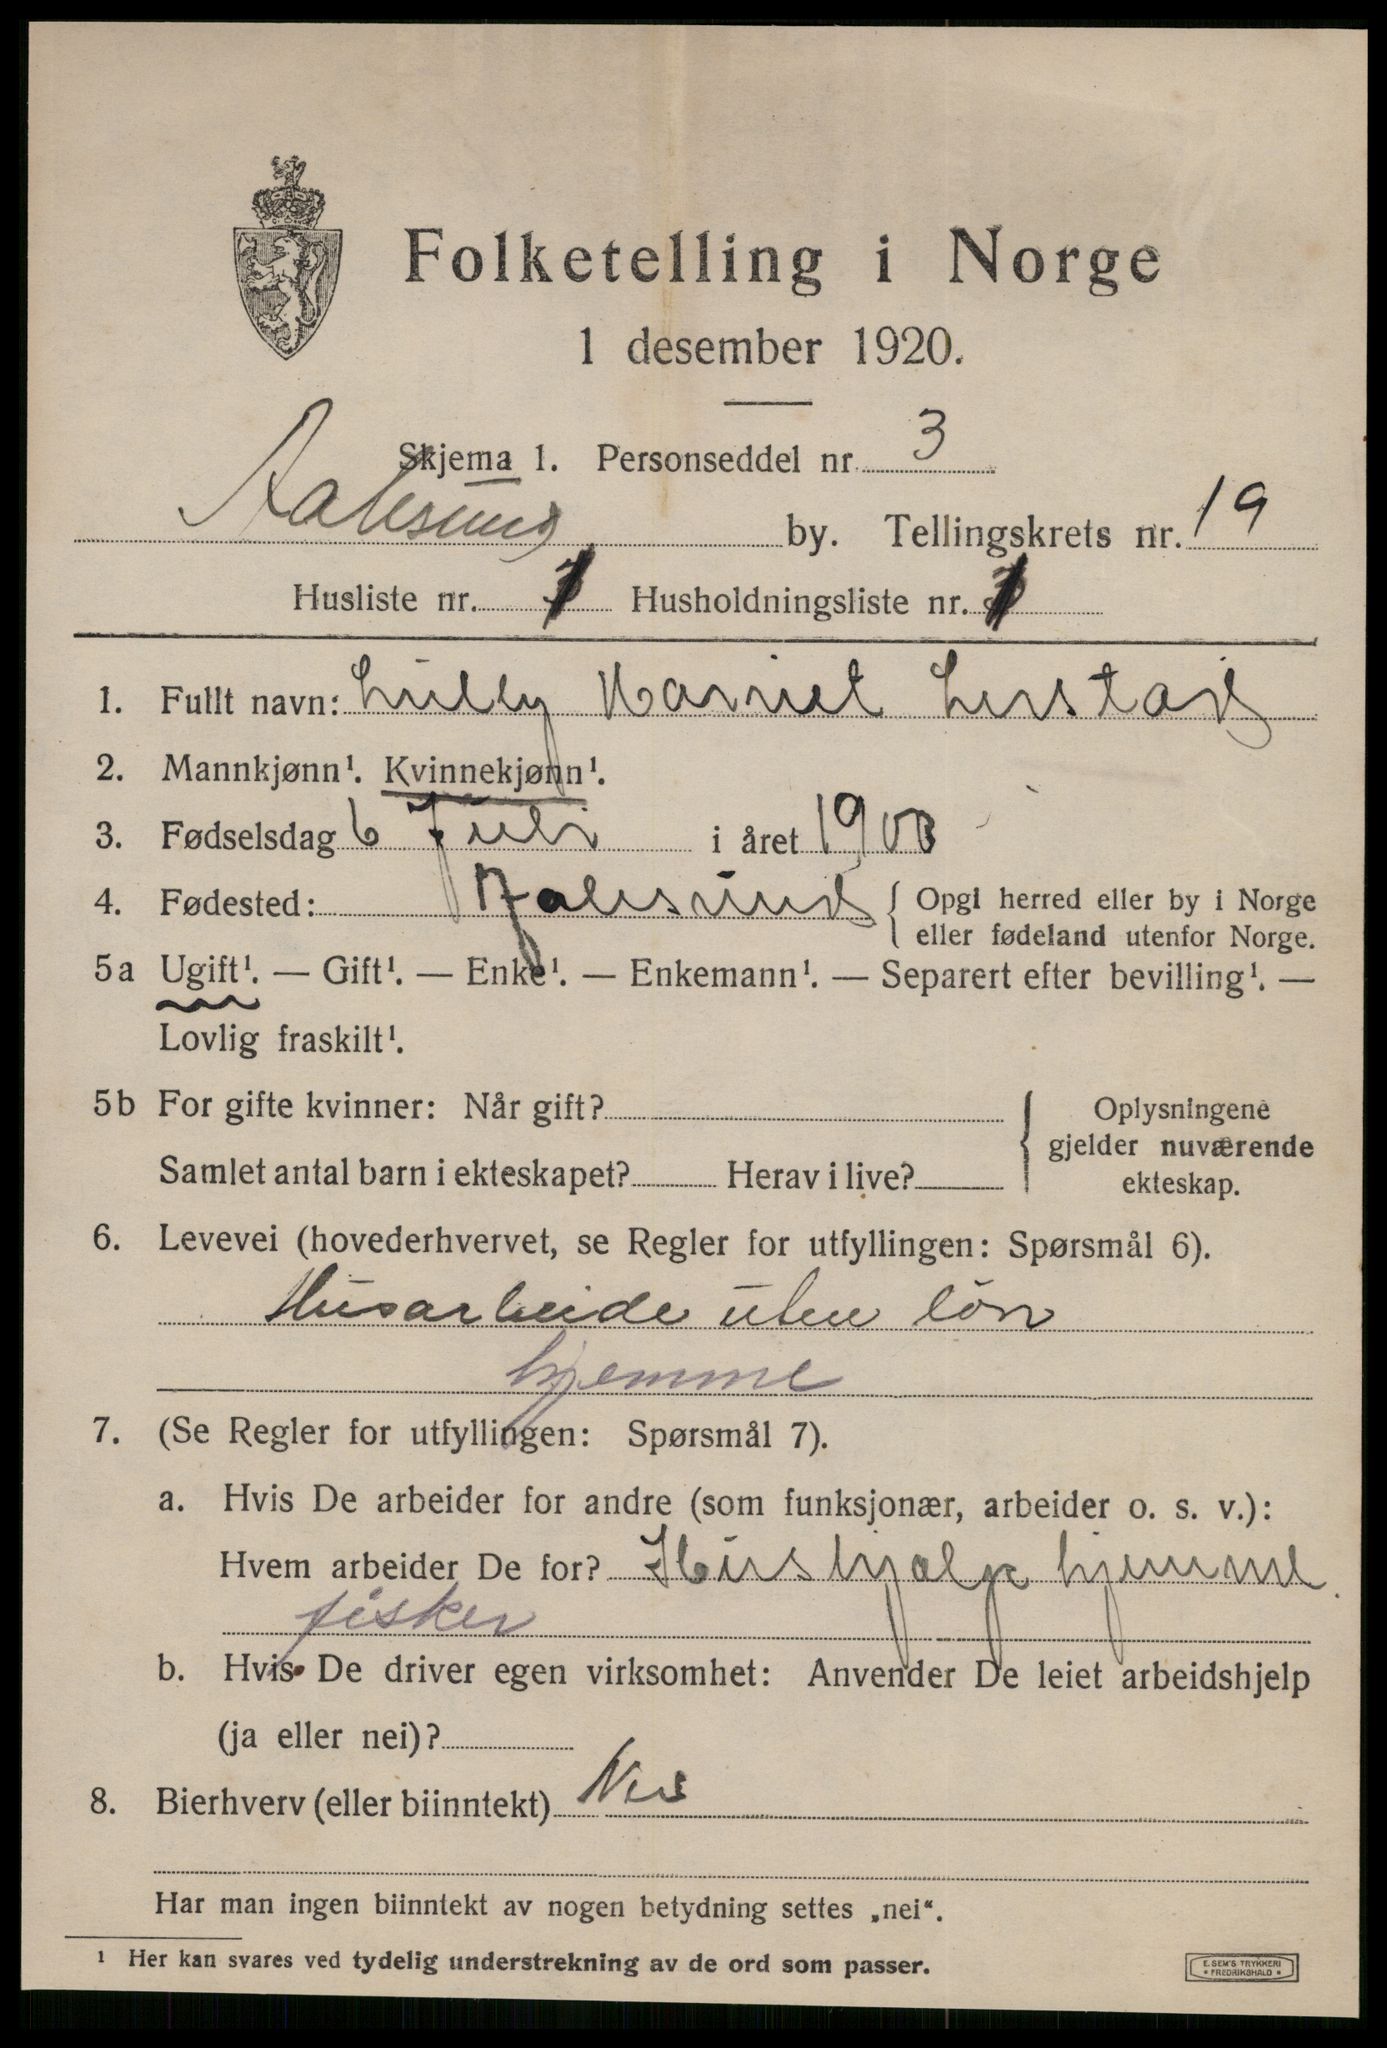 Folketelling i Norge
1 desember 1920.
Skjema 1. Personseddel nr 3
Aalesund by. Tellingskrets nr. 19
Husliste nr. Husholdningsliste nr.
1. Fullt navn: Lilly Harriet Lerstad
2. Mannkjønn¹. Kvinnekjønn¹.
3. Fødselsdag 6 Juli i året 1900
4. Fødested: Aalesund { Opgi herred eller by i Norge
eller fødeland utenfor Norge.
5a Ugift¹. — Gift¹. — Enke¹. — Enkemann¹. — Separert efter bevilling¹. —
Lovlig fraskilt¹.
5b For gifte kvinner: Når gift? { Oplysningene
gjelder nuværende
Samlet antal barn i ekteskapet? Herav i live? ekteskap.
6. Levevei (hovederhvervet, se Regler for utfyllingen: Spørsmål 6).
Husarbeide uten løn
hjemme
7. (Se Regler for utfyllingen: Spørsmål 7).
a. Hvis De arbeider for andre (som funksjonær, arbeider o. s. v.):
Hvem arbeider De for? Hushjælp hjemme.
fisker
b. Hvis De driver egen virksomhet: Anvender De leiet arbeidshjelp
(ja eller nei)?
8. Bierhverv (eller biinntekt) Nei
Har man ingen biinntekt av nogen betydning settes „nei“.
¹ Her kan svares ved tydelig understrekning av de ord som passer.
E. SEM'S TRYKKERI
• FREDRIKSHALD •